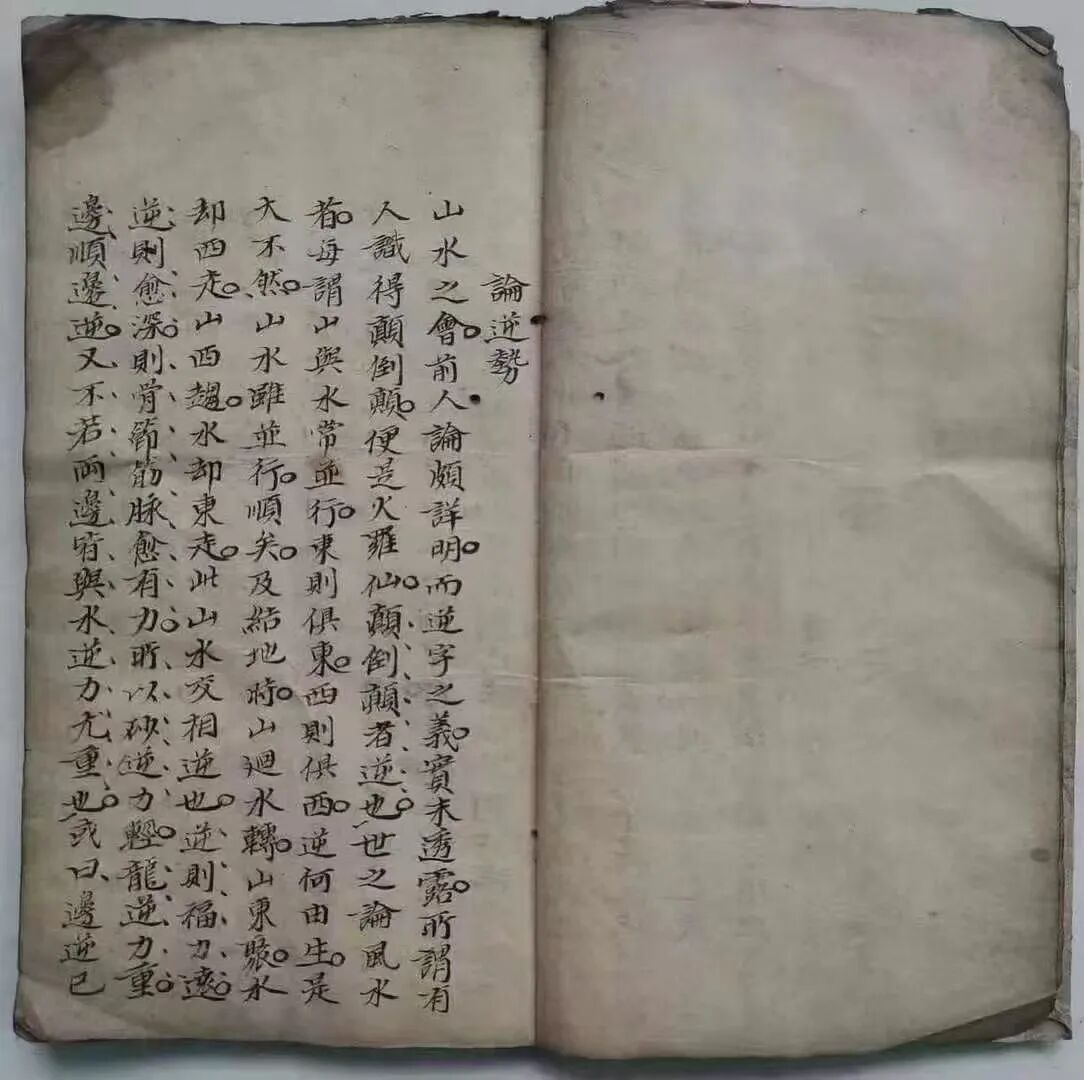 論逆勢
山水之會。前人論頗詳明。而逆字之義。實未透露。所謂有
人識得顛倒顛。便是大羅仙。顛倒顛者逆也。世之論風水
者。每謂山與水常並行。東則俱東。西則俱西。逆何由生。是
大不然。山水雖並行。順矣。及結地時。山迴水轉。山東聚。水
却西走。山西趨。水却東走。此山水交相逆也。逆則福力遠。
逆則愈深。則骨節筋脉愈有力。所以砂逆力輕。龍逆力重。
邊順邊逆。又不若兩邊皆與水逆力尤重也。或曰、邊逆已